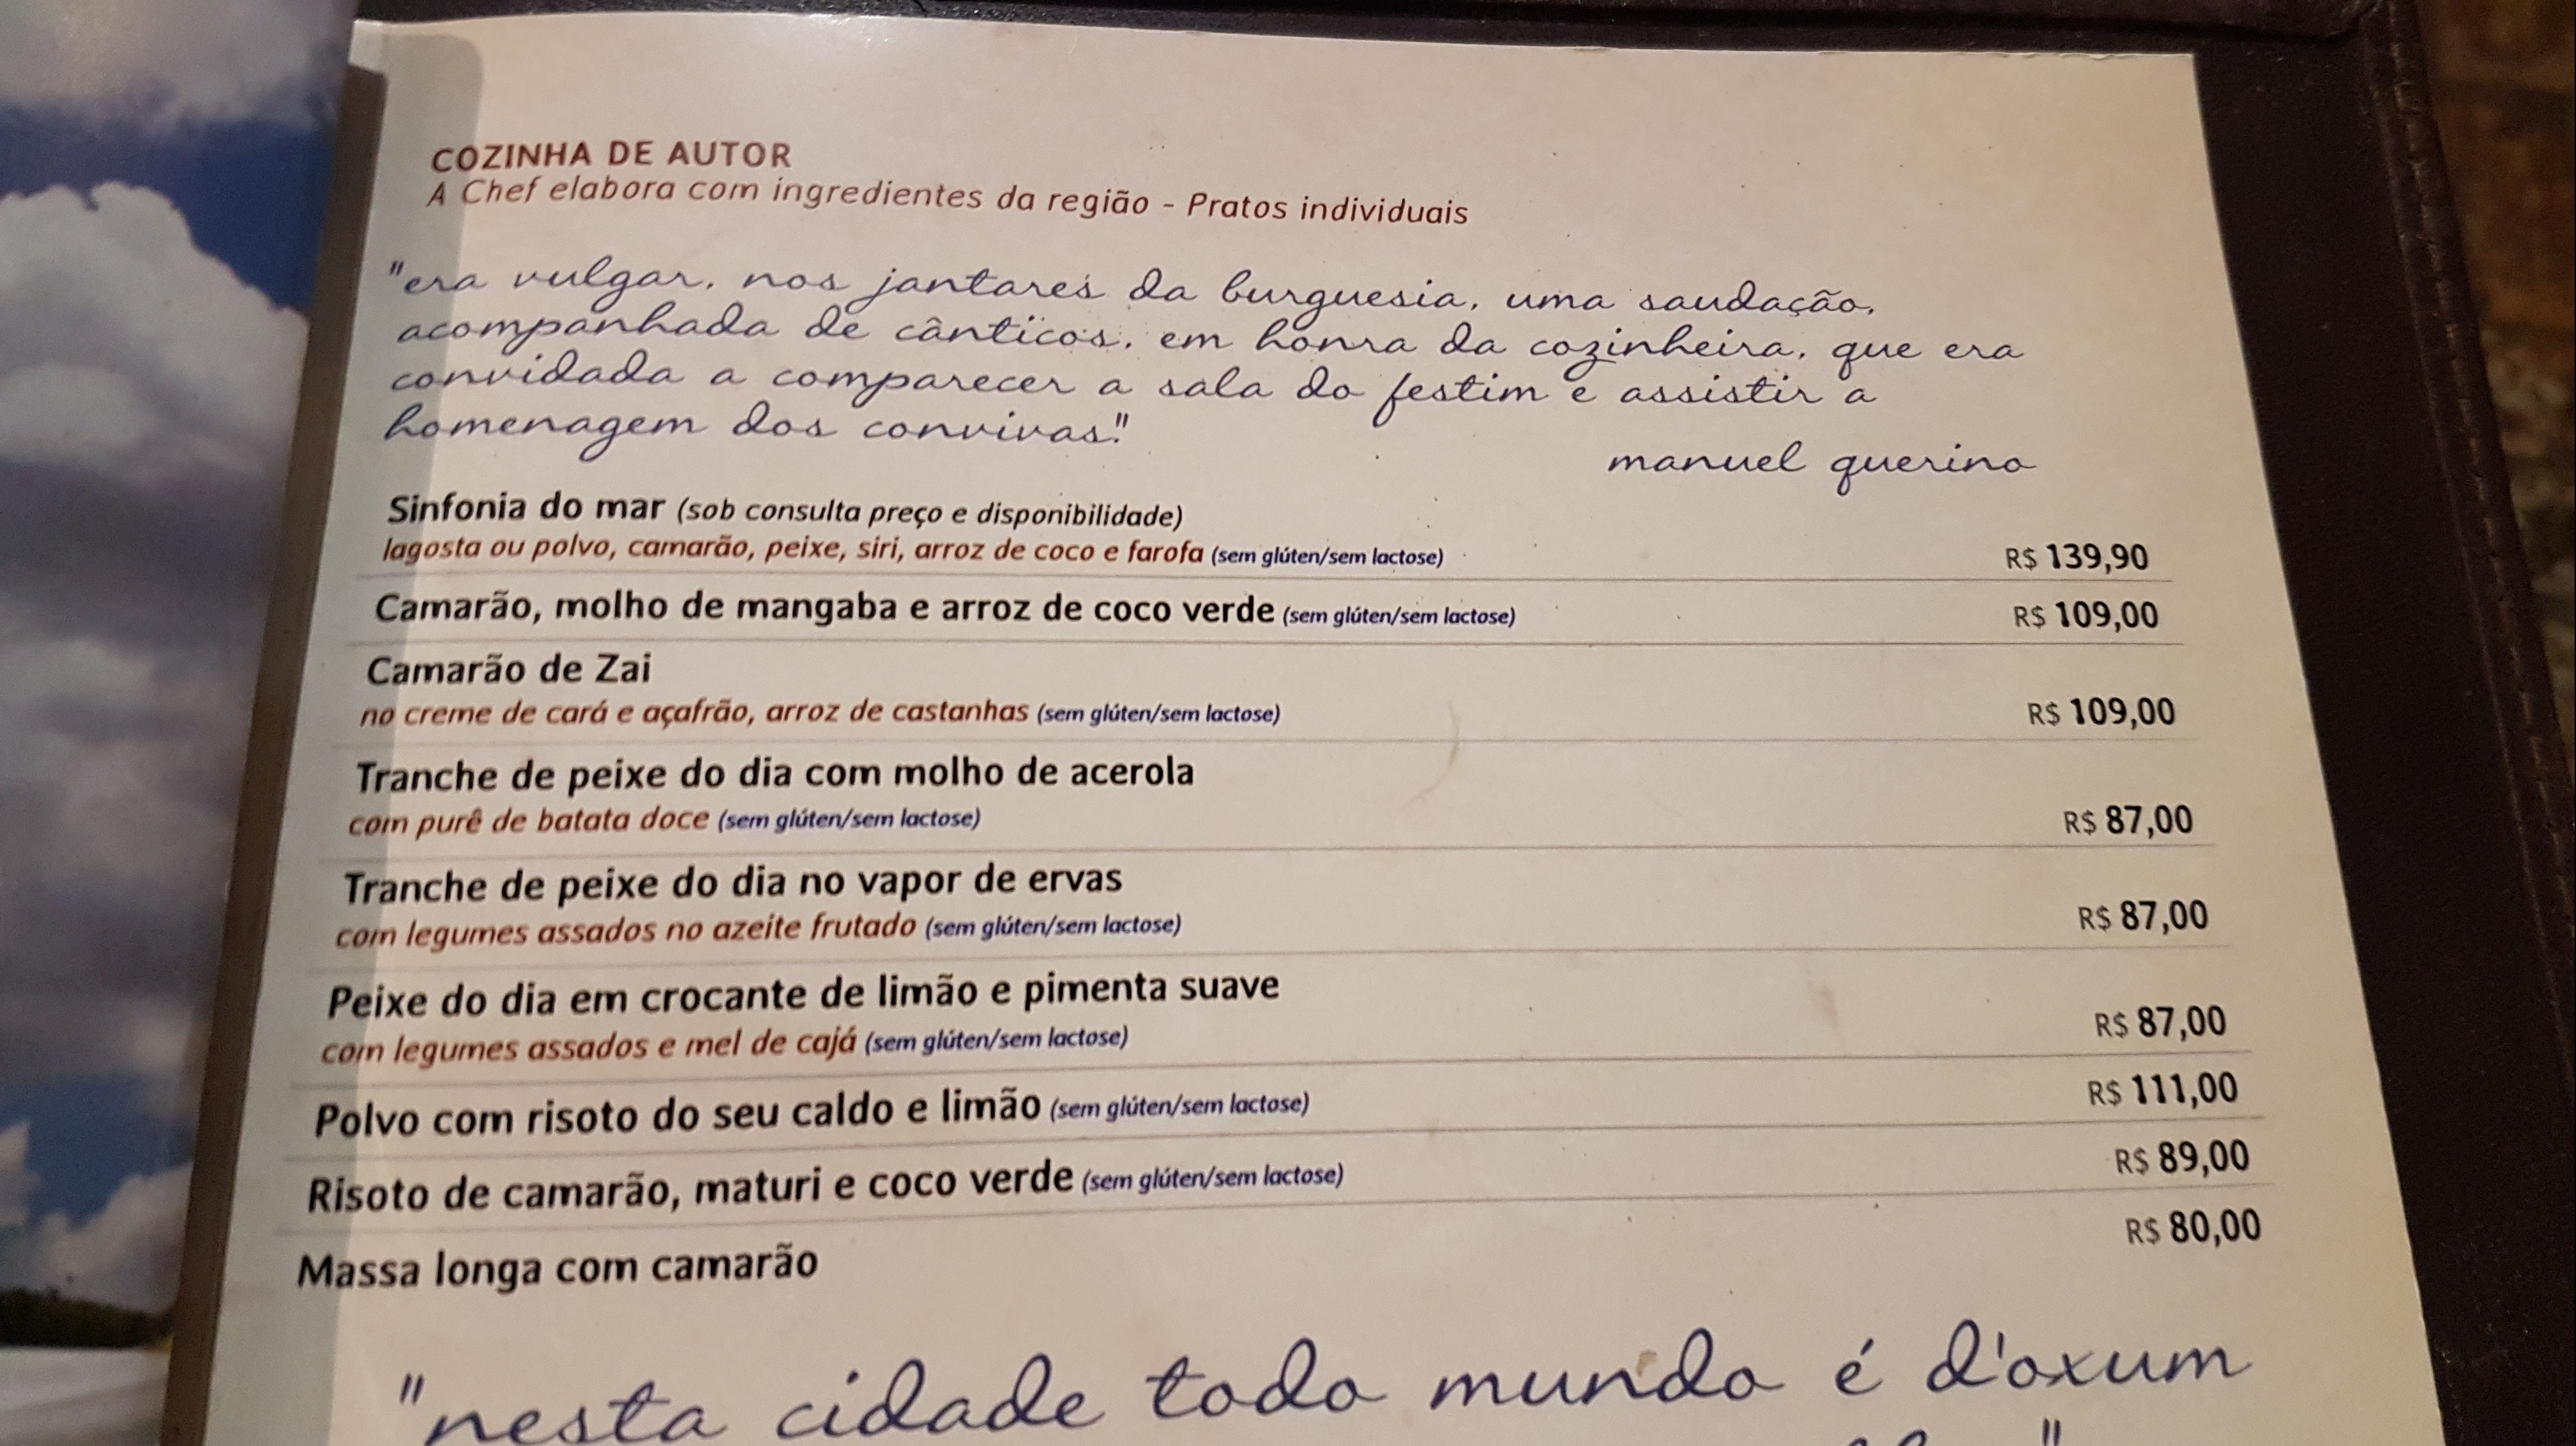 COZINHA DE AUTOR
A Chef elabora com ingredientes da região - Pratos individuais
"era vulgar, nos jantares da burguesia, uma saudação,
acompanhada de cânticos, em honra da cozinheira, que era
convidada a comparecer a sala do festim e assistir a
homenagem dos convivas."
manuel querino
Sinfonia do mar (sob consulta preço e disponibilidade)
lagosta ou polvo, camarão, peixe, siri, arroz de coco e farofa (sem glúten/sem lactose) R$ 139,90
Camarão, molho de mangaba e arroz de coco verde (sem glúten/sem lactose) R$ 109,00
Camarão de Zai
no creme de cará e açafrão, arroz de castanhas (sem glúten/sem lactose) R$ 109,00
Tranche de peixe do dia com molho de acerola
com purê de batata doce (sem glúten/sem lactose) R$ 87,00
Tranche de peixe do dia no vapor de ervas
com legumes assados no azeite frutado (sem glúten/sem lactose) R$ 87,00
Peixe do dia em crocante de limão e pimenta suave
com legumes assados e mel de cajá (sem glúten/sem lactose) R$ 87,00
Polvo com risoto do seu caldo e limão (sem glúten/sem lactose) R$ 111,00
Risoto de camarão, maturi e coco verde (sem glúten/sem lactose) R$ 89,00
Massa longa com camarão R$ 80,00
"nesta cidade todo mundo é d'oxum